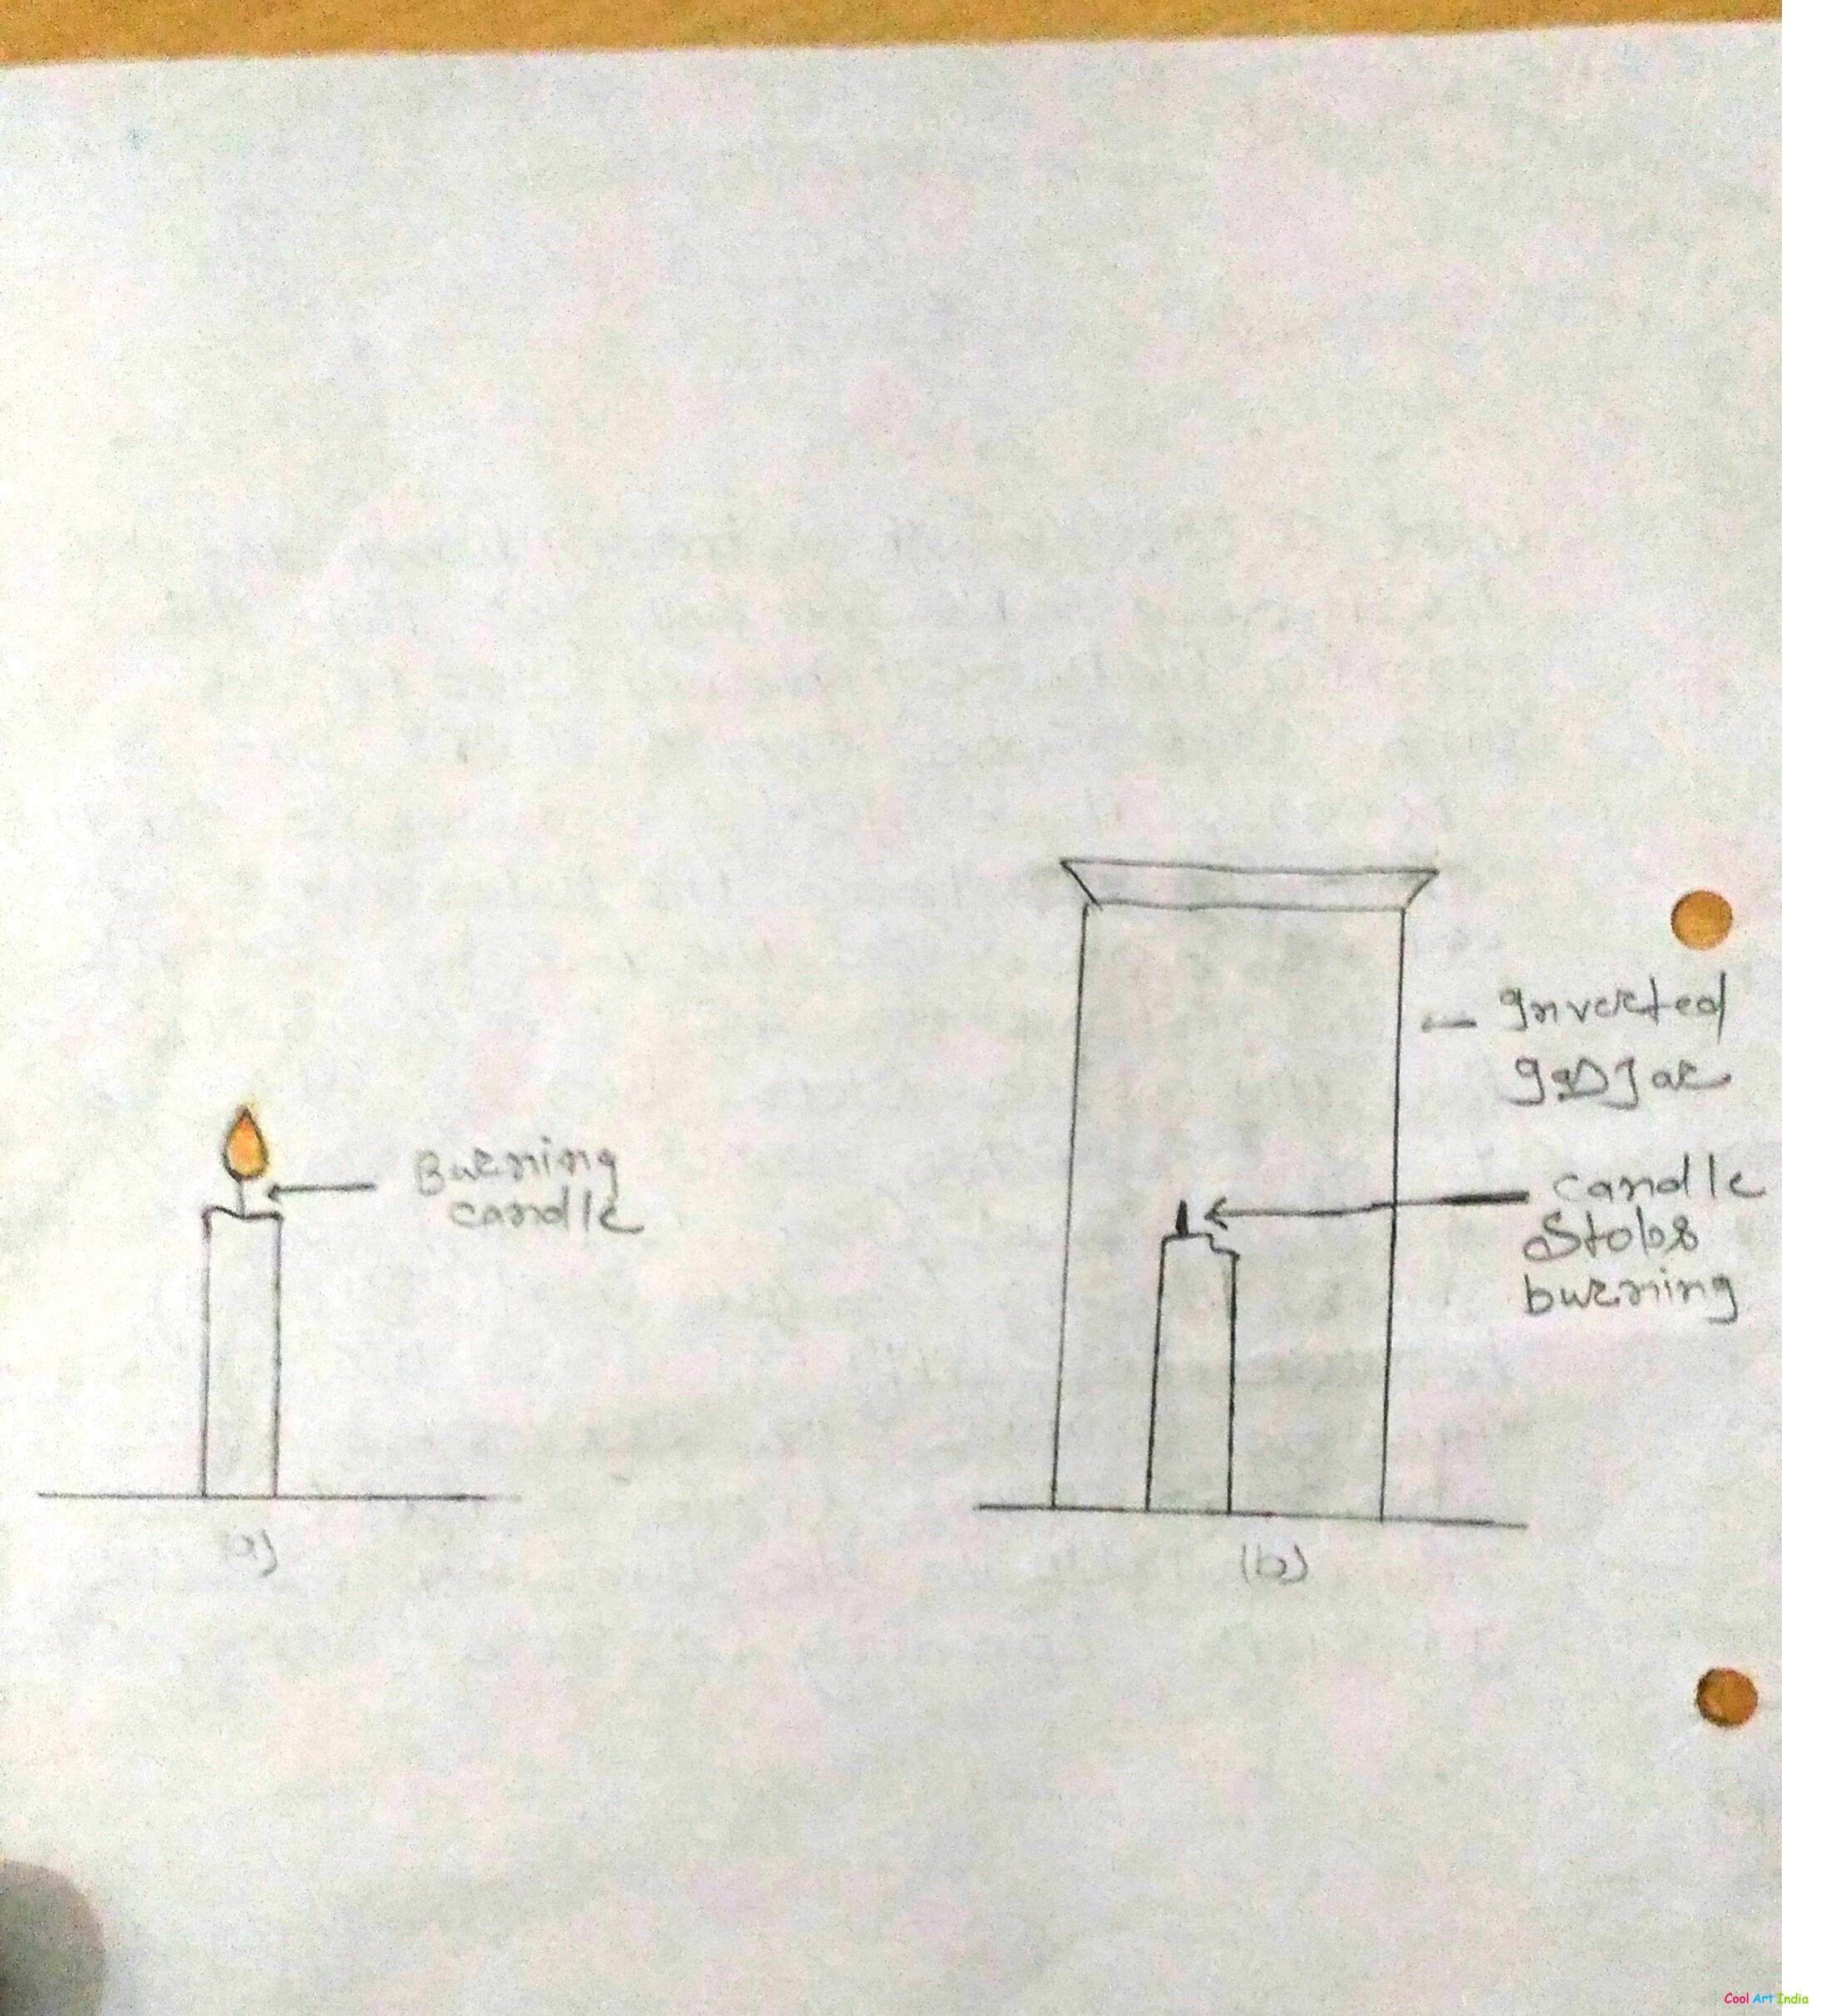 Burning
candle
(a)
Inverted
gas Jar
candle
Stobs
burning
(b)
Cool Art India